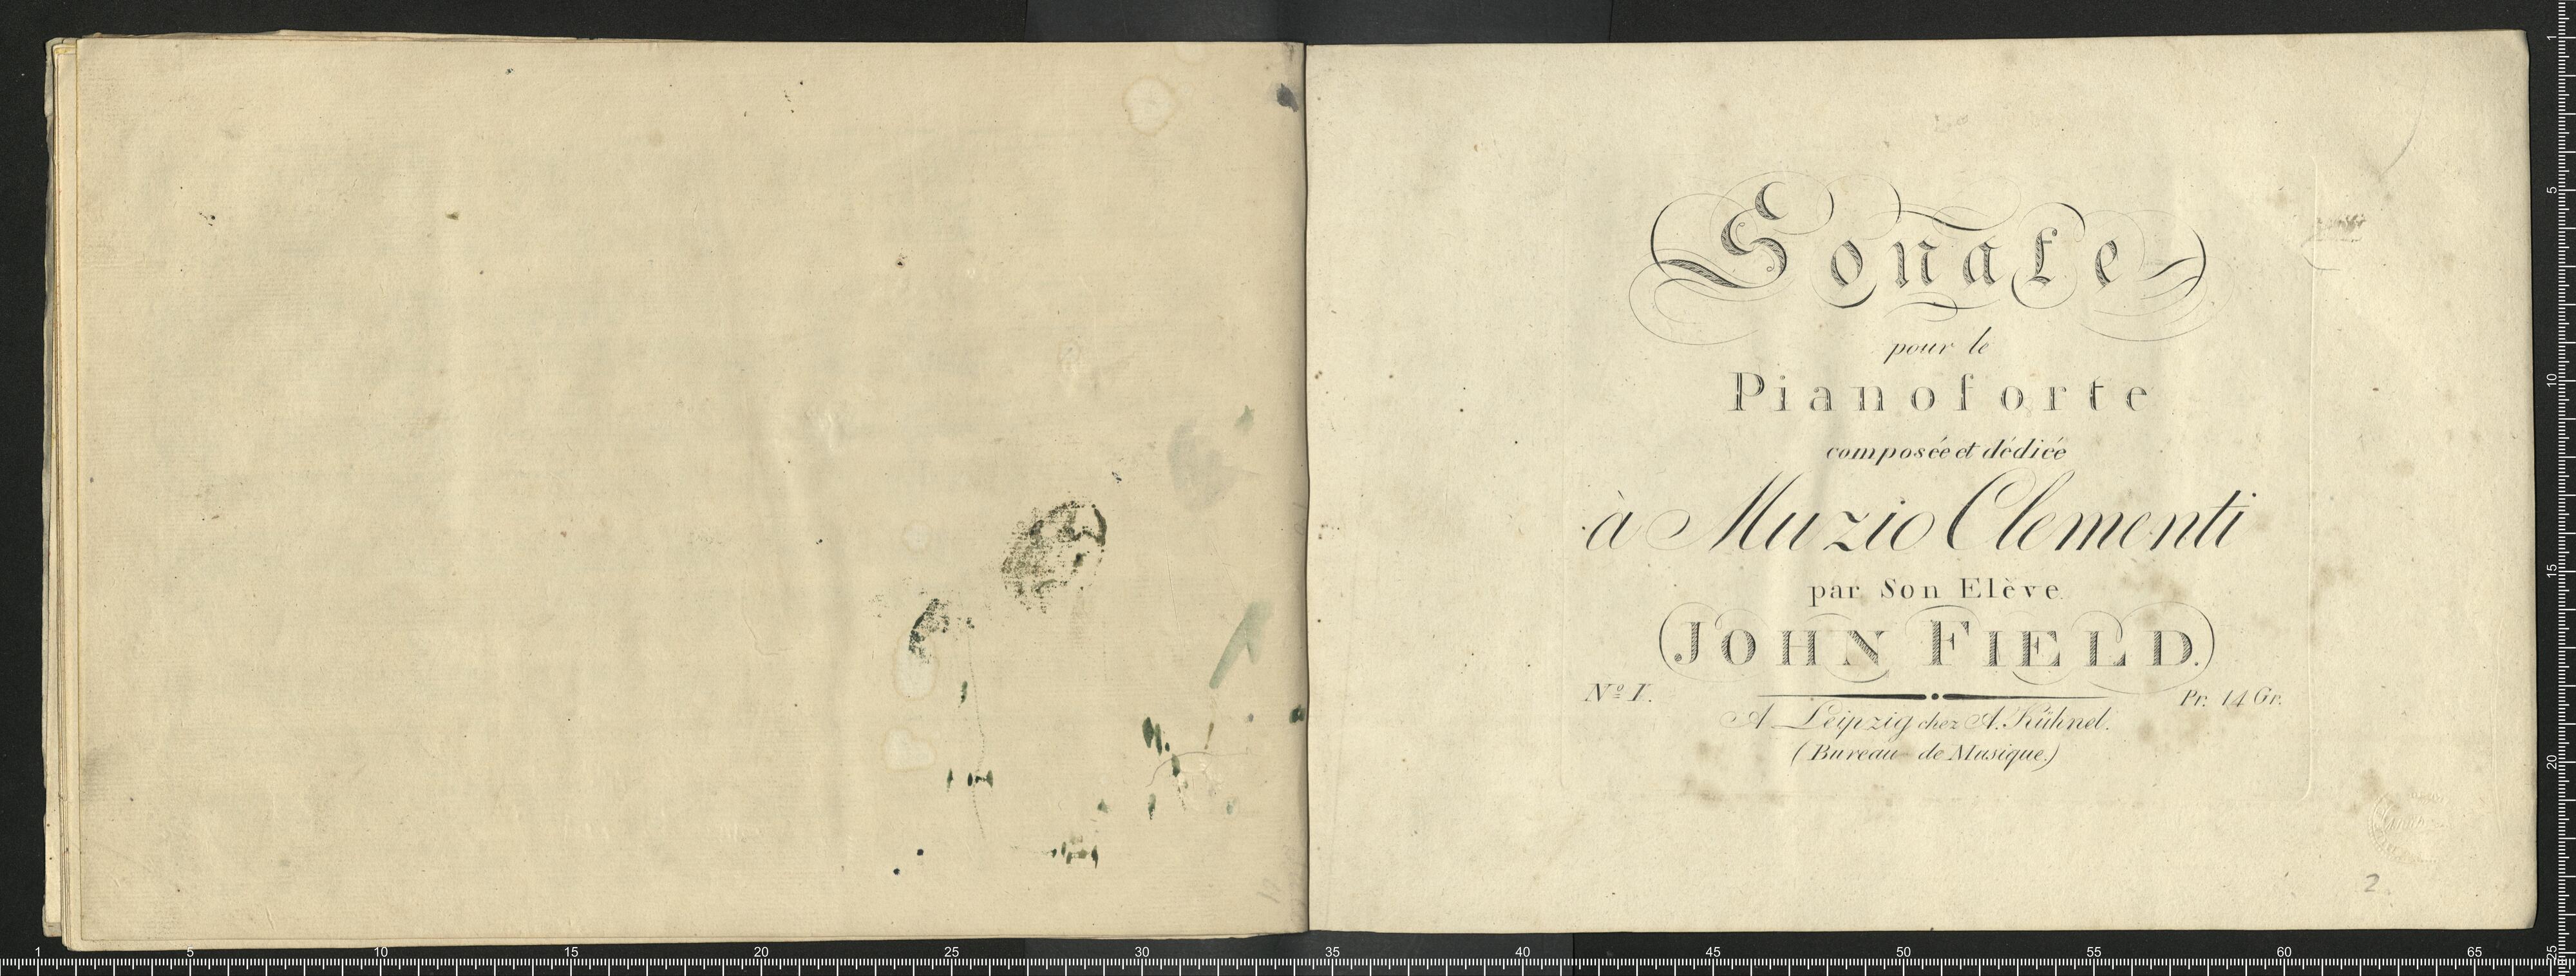 Sonate
pour le
Pianoforte
composée et dédicé
à Muzio Clementi
par Son Elève
JOHN FIELD.
Nº I. Pr. 14 Gr.
A Leipzig chez A. Kühnel.
(Bureau de Musique.)
2
1 5 10 15 20 25 30 35 40 45 50 55 60 65
1 5 10 15 20 25